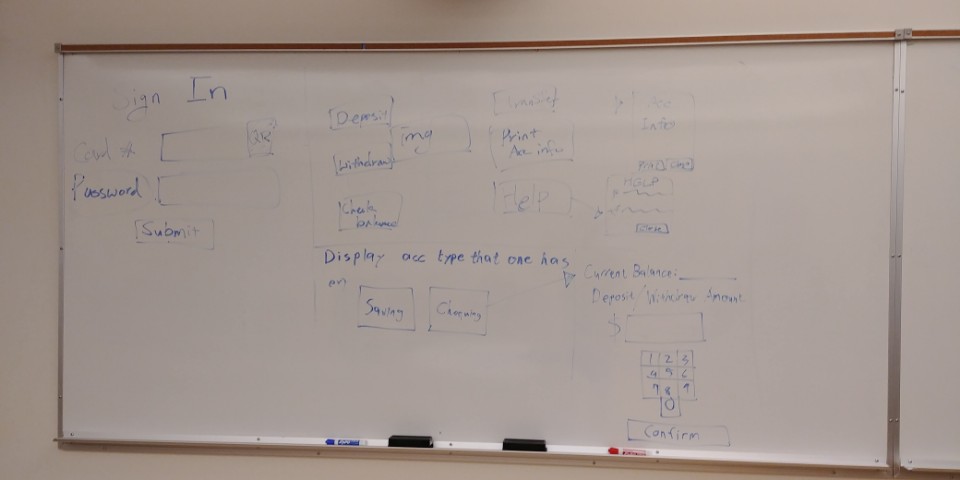 Sign In
Card #
Password
Submit
Deposit
Withdraw
Check balance
img
Print
Acc info
Help
Acc
Info
HELP
Display acc type that one has
on
Saving
Current Balance:
Deposit/Withdraw Amount
$
1 2 3
4 5 6
7 8 9
0
Confirm